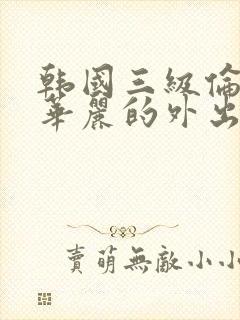 韩國三級倫
華麗的外出
賣萌無敵小小